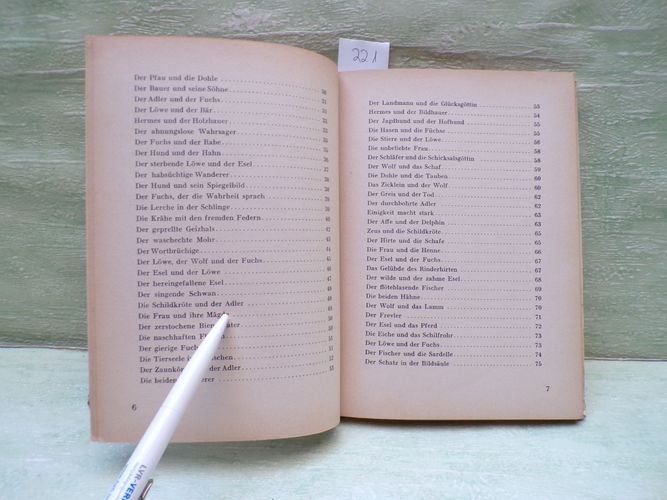 221
Der Pfau und die Dohle
Der Bauer und seine Söhne 30
Der Adler und der Fuchs 31
Der Löwe und der Bär 31
Hermes und der Holzhauer
Der ahnungslose Wahrsager
Der Fuchs und der Rabe
Der Hund und der Hahn
Der sterbende Löwe und der Esel
Der habsüchtige Wanderer
Der Hund und sein Spiegelbild
Der Fuchs, der die Wahrheit sprach
Die Lerche in der Schlinge
Die Krähe mit den fremden Federn 40
Der geprellte Geizhals 42
Der waschechte Mohr 44
Der Wortbrüchige 44
Der Löwe, der Wolf und der Fuchs 46
Der Esel und der Löwe 46
Der hereingefallene Esel 47
Der singende Schwan 48
Die Schildkröte und der Adler 49
Die Frau und ihre 49
Der zerstochene 50
Die naschhaften 50
Der gierige 51
Die Tierseele 51
Der der Adler 52
Die beiden 53
6
Der Landmann und die Glücksgöttin 53
Hermes und der Bildhauer 54
Der Jagdhund und der Hofhund 55
Die Hasen und die Füchse 55
Die Stiere und der Löwe 56
Die unbeliebte Frau 58
Der Schläfer und die Schicksalsgöttin 58
Der Wolf und das Schaf 59
Die Dohle und die Tauben 60
Das Zicklein und der Wolf 60
Der Greis und der Tod 61
Der durchbohrte Adler 62
Einigkeit macht stark 63
Der Affe und der Delphin 63
Zeus und die Schildkröte 65
Der Hirte und die Schafe 66
Die Frau und die Henne 66
Der Esel und der Fuchs 67
Das Gelübde des Rinderhirten 67
Der wilde und der zahme Esel 68
Der flöteblasende Fischer 69
Die beiden Hähne 70
Der Wolf und das Lamm 70
Der Frevler 71
Der Esel und das Pferd 72
Die Eiche und das Schilfrohr 73
Der Löwe und der Fuchs 73
Der Fischer und die Sardelle 74
Der Schatz in der Bildsäule 75
7
LVR-VER